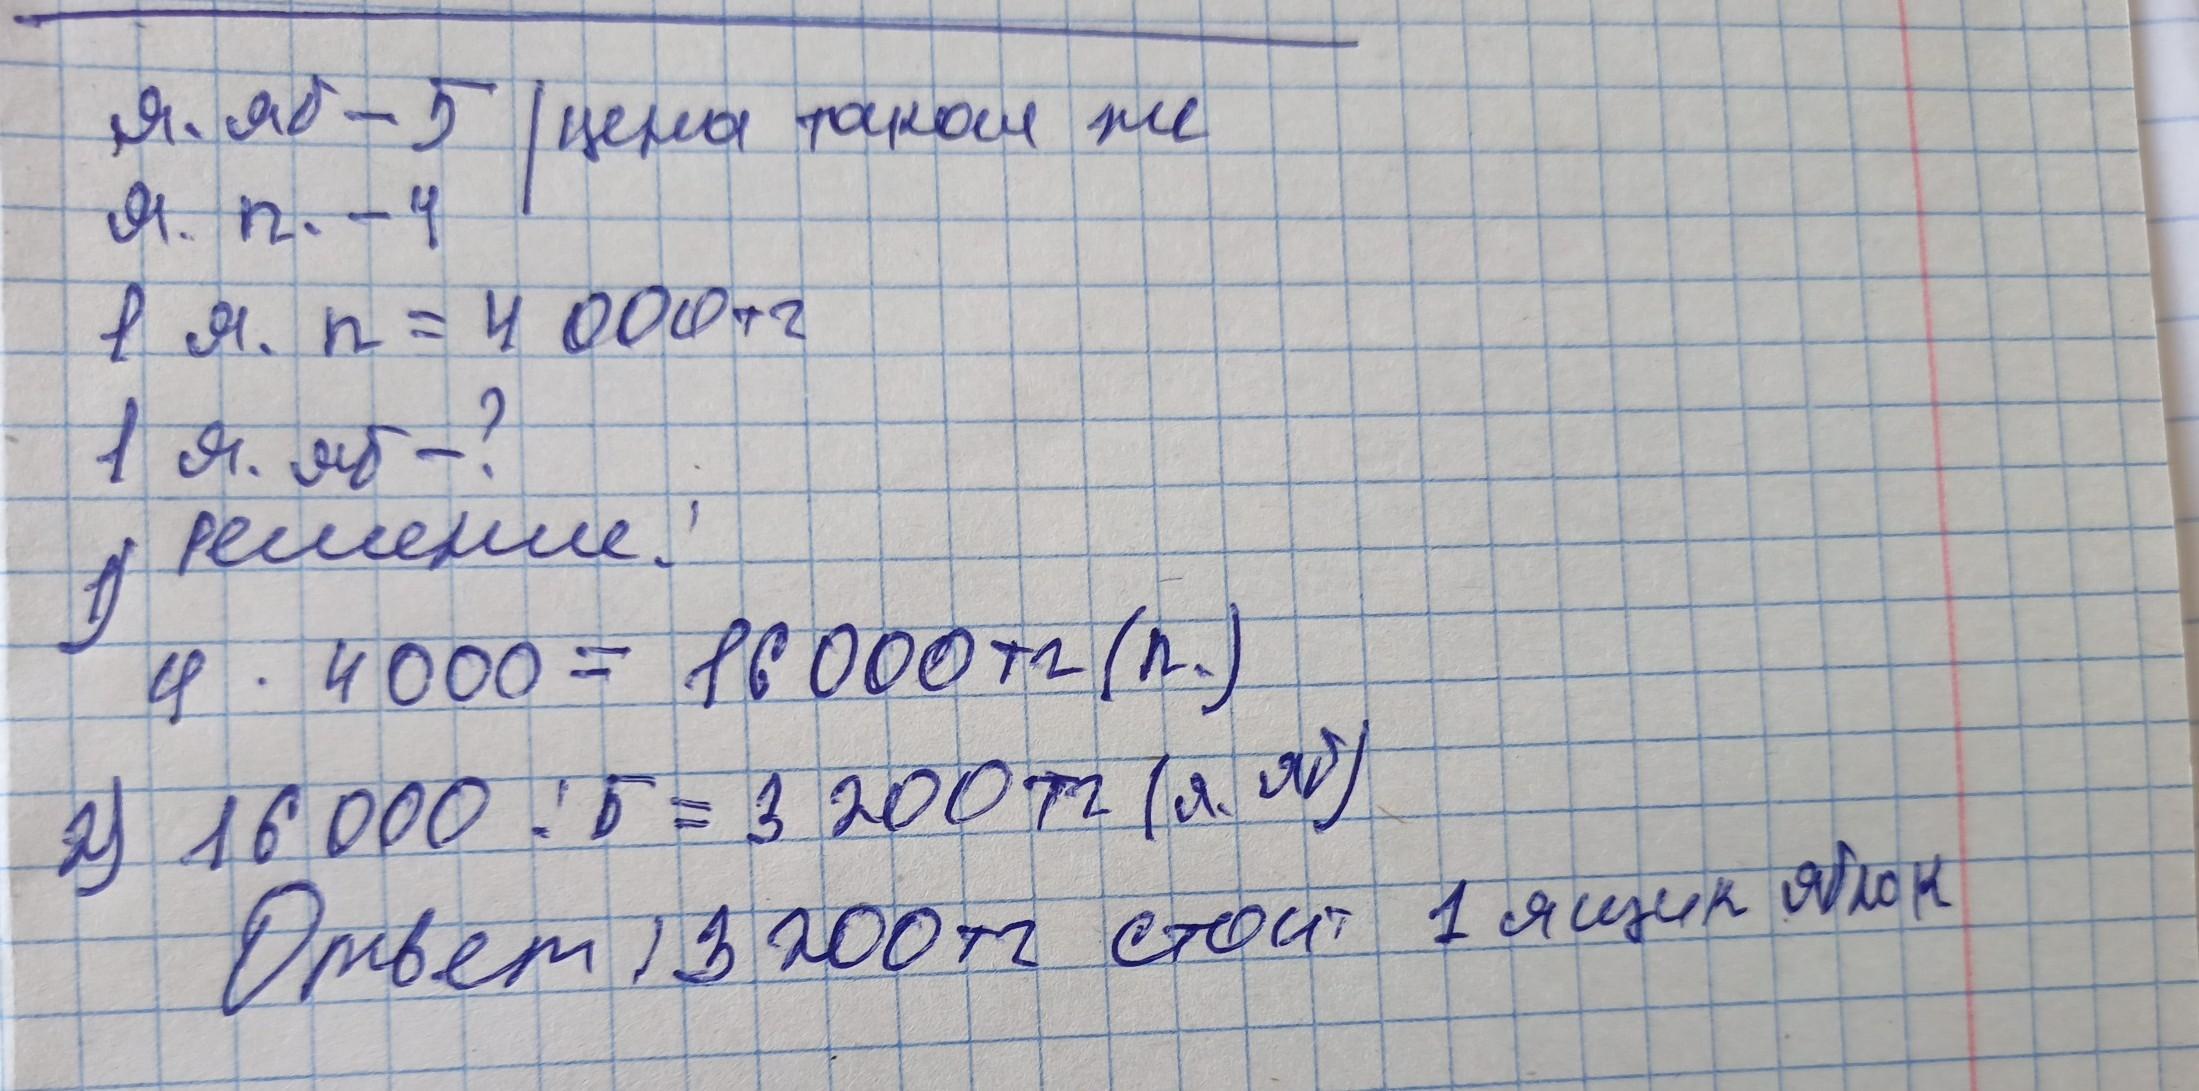 я. яб – 5 | цена такая же
я. п. – 4
1 я. п = 4 000 тг
1 я. яб – ?
Решение:
1)
4 · 4000 = 16 000 тг (п.)
2) 16 000 : 5 = 3 200 тг (я. яб)
Ответ: 3 200 тг стоит 1 ящик яблок